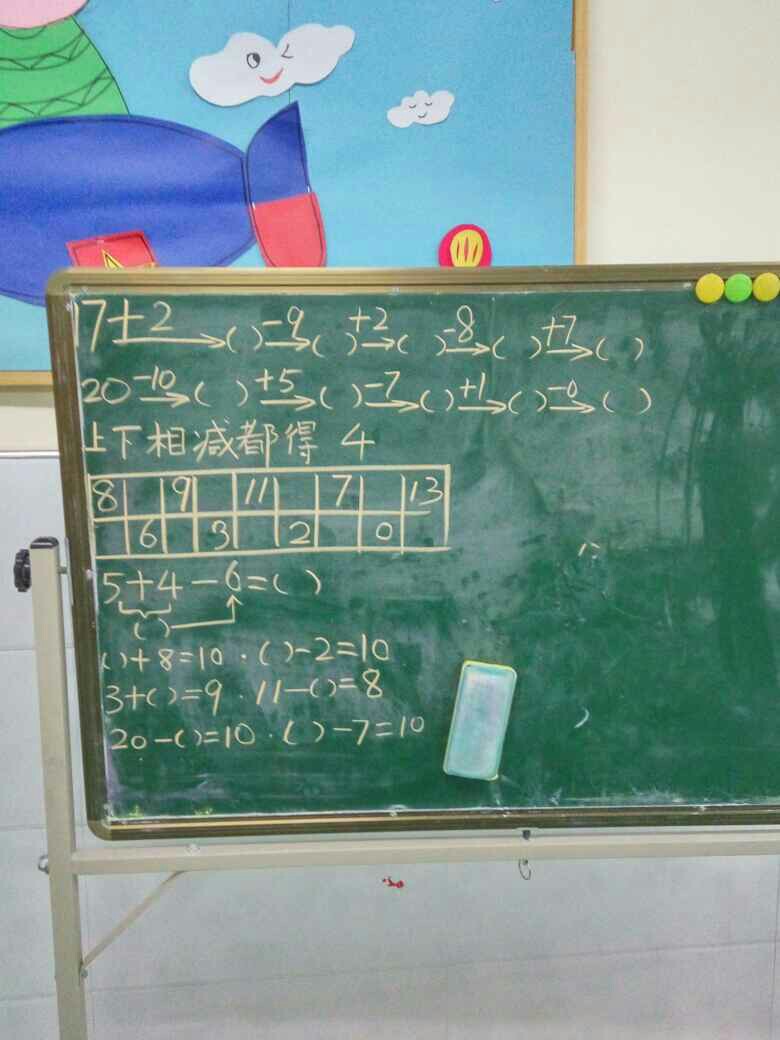 17 +2→( ) -9→( ) +2→( ) -8→( ) +7→( )
20 -10→( ) +5→( ) -7→( ) +1→( ) -0→( )
上下相减都得 4
8 9 11 7 13
6 3 2 0
5+4-6=( )
( )
( )+8=10 · ( )-2=10
3+( )=9 · 11-( )=8
20-( )=10 · ( )-7=10